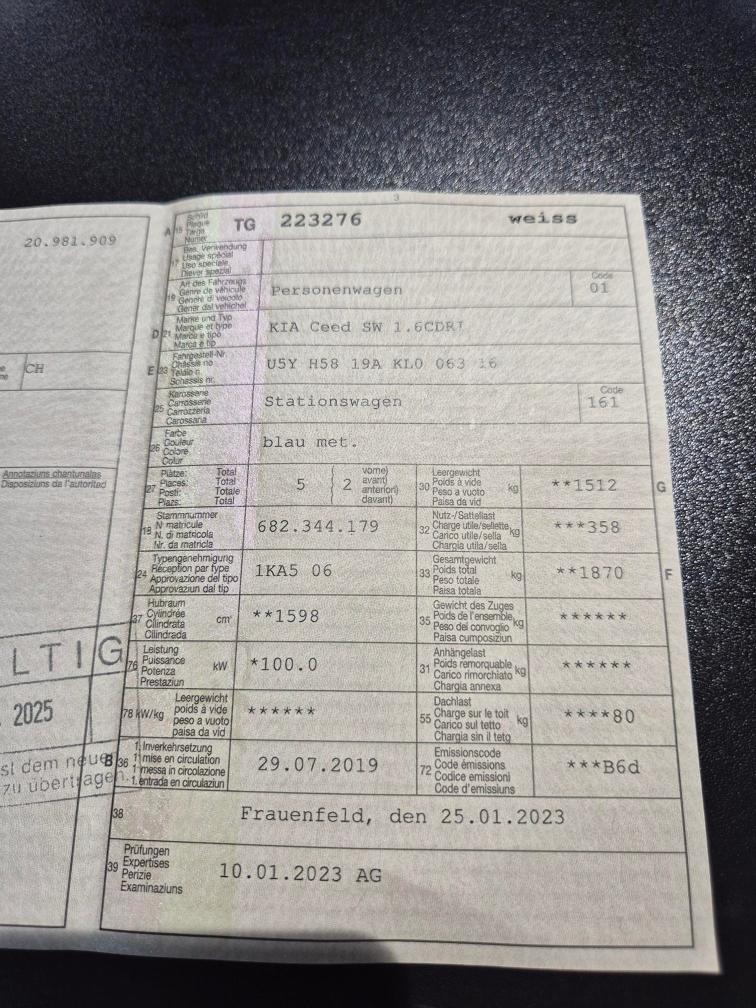 3
20.981.909
A 15 Schild Plaque Targa Numer TG 223276 weiss
17 Bes. Verwendung Usage spécial Uso speciale Diever spezial
19 Art des Fahrzeugs Genre de véhicule Genere di veicolo Gener dal vehichel Personenwagen Code 01
D 21 Marke und Typ Marque et type Marca e tipo Marca e tip KIA Ceed SW 1.6CDRI
CH
E 23 Fahrgestell-Nr. Châssis no Telaio n. Schassis nr. U5Y H58 19A KL0 063
25 Karosserie Carrosserie Carrozzeria Carossaria Stationswagen Code 161
26 Farbe Couleur Colore Colur blau met.
Annotaziuns chantunalas
Disposiziuns da l'autoritad
27 Plätze: Total Places: Total Posti: Totale Plazs: Total 5 2 vorne) avant) anteriori) davant)
30 Leergewicht Poids à vide Peso a vuoto Paisa da vid kg **1512 G
18 Stammnummer N matricule N. di matricola Nr. da matricla 682.344.179
32 Nutz-/Sattellast Charge utile/sellette Carico utile/sella Chargia utila/sella kg ***358
24 Typengenehmigung Réception par type Approvazione del tipo Approvaziun dal tip 1KA5 06
33 Gesamtgewicht Poids total Peso totale Paisa totala kg **1870 F
37 Hubraum Cylindrée Cilindrata Cilindrada cm³ **1598
35 Gewicht des Zuges Poids de l'ensemble Peso del convoglio Paisa cumposiziun kg ******
LTIG
76 Leistung Puissance Potenza Prestaziun kW *100.0
31 Anhängelast Poids remorquable Carico rimorchiato Chargia annexa kg ******
2025
78 kW/kg Leergewicht poids à vide peso a vuoto paisa da vid ******
55 Dachlast Charge sur le toit Carico sul tetto Chargia sin il tetg kg ****80
st dem neue
zu übertragen.
B 36 1. Inverkehrsetzung 1 mise en circulation 1 messa in circolazione 1. entrada en circulaziun 29.07.2019
72 Emissionscode Code émissions Codice emissioni Code d'emissiuns ***B6d
38 Frauenfeld, den 25.01.2023
39 Prüfungen Expertises Perizie Examinaziuns 10.01.2023 AG